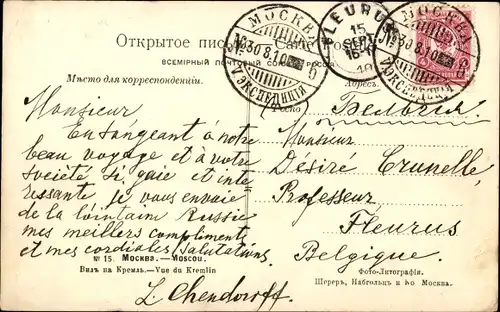 Открытое письмо. Carte Postale
ВСЕМІРНЫЙ ПОЧТОВЫЙ СОЮЗЪ РОССІЯ
Мѣсто для корреспонденціи.
Адресъ.
МОСКВА
30 8 10
6
V ЭКСПЕДИЦІЯ
FLEURUS
15
SEPT
10
МОСКВА
30 8 10
V ЭКСПЕДИЦІЯ
Бельгія
Monsieur
En songeant à notre
beau voyage et à votre
société si gaie et inte
ressante je vous envoie
de la lointain Russie
mes meillers compliments
et mes cordiales salutations.
L. Chendoroff
Monsieur
Désiré Crunelle,
Professeur,
Fleurus
Belgique.
№ 15. Москва.—Moscou.
Видъ на Кремль.—Vue du Kremlin
Фото-Литографія.
Шереръ, Набгольцъ и Ко Москва.